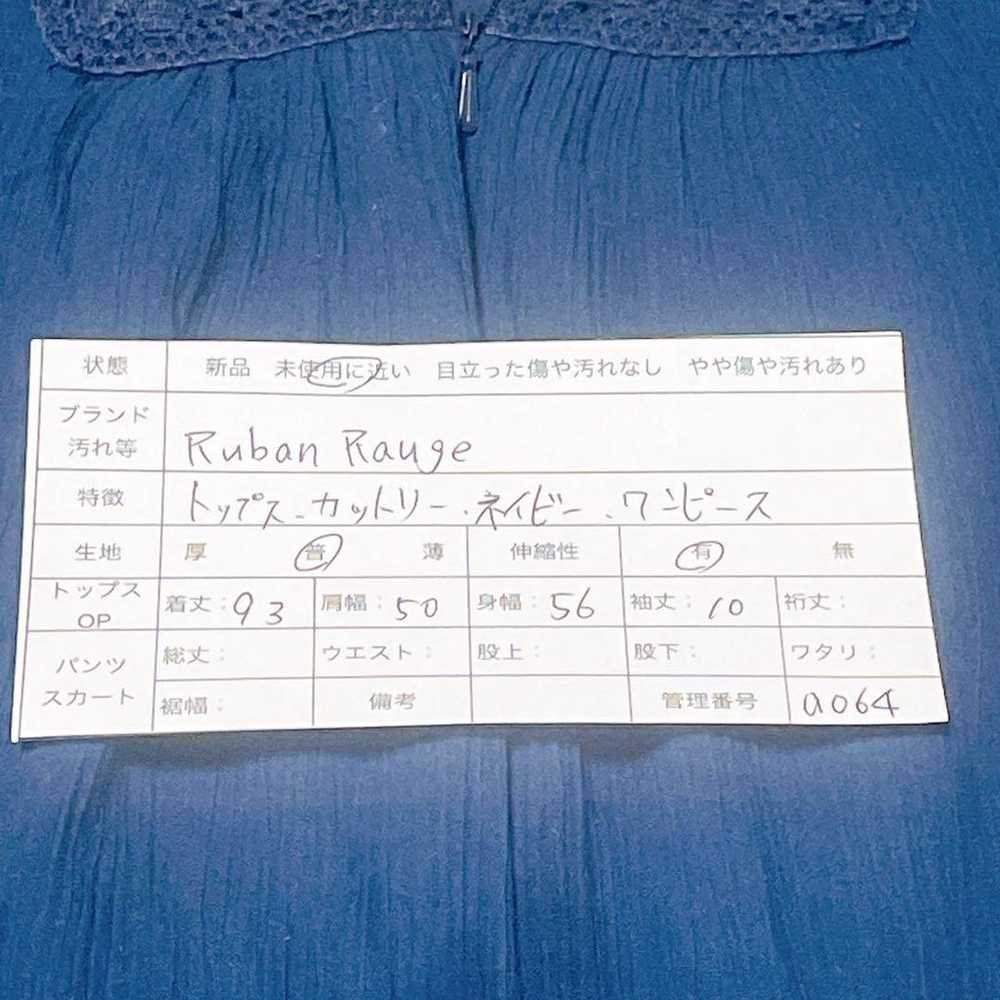 状態 新品 未使用に近い 目立った傷や汚れなし やや傷や汚れあり
ブランド
汚れ等 Ruban Rauge
特徴 トップス、カットリー、ネイビー、ワンピース
生地 厚 普 薄 伸縮性 有 無
トップス
OP 着丈：93 肩幅：50 身幅：56 袖丈：10 裄丈：
パンツ
スカート 総丈： ウエスト： 股上： 股下： ワタリ：
裾幅： 備考 管理番号 a064